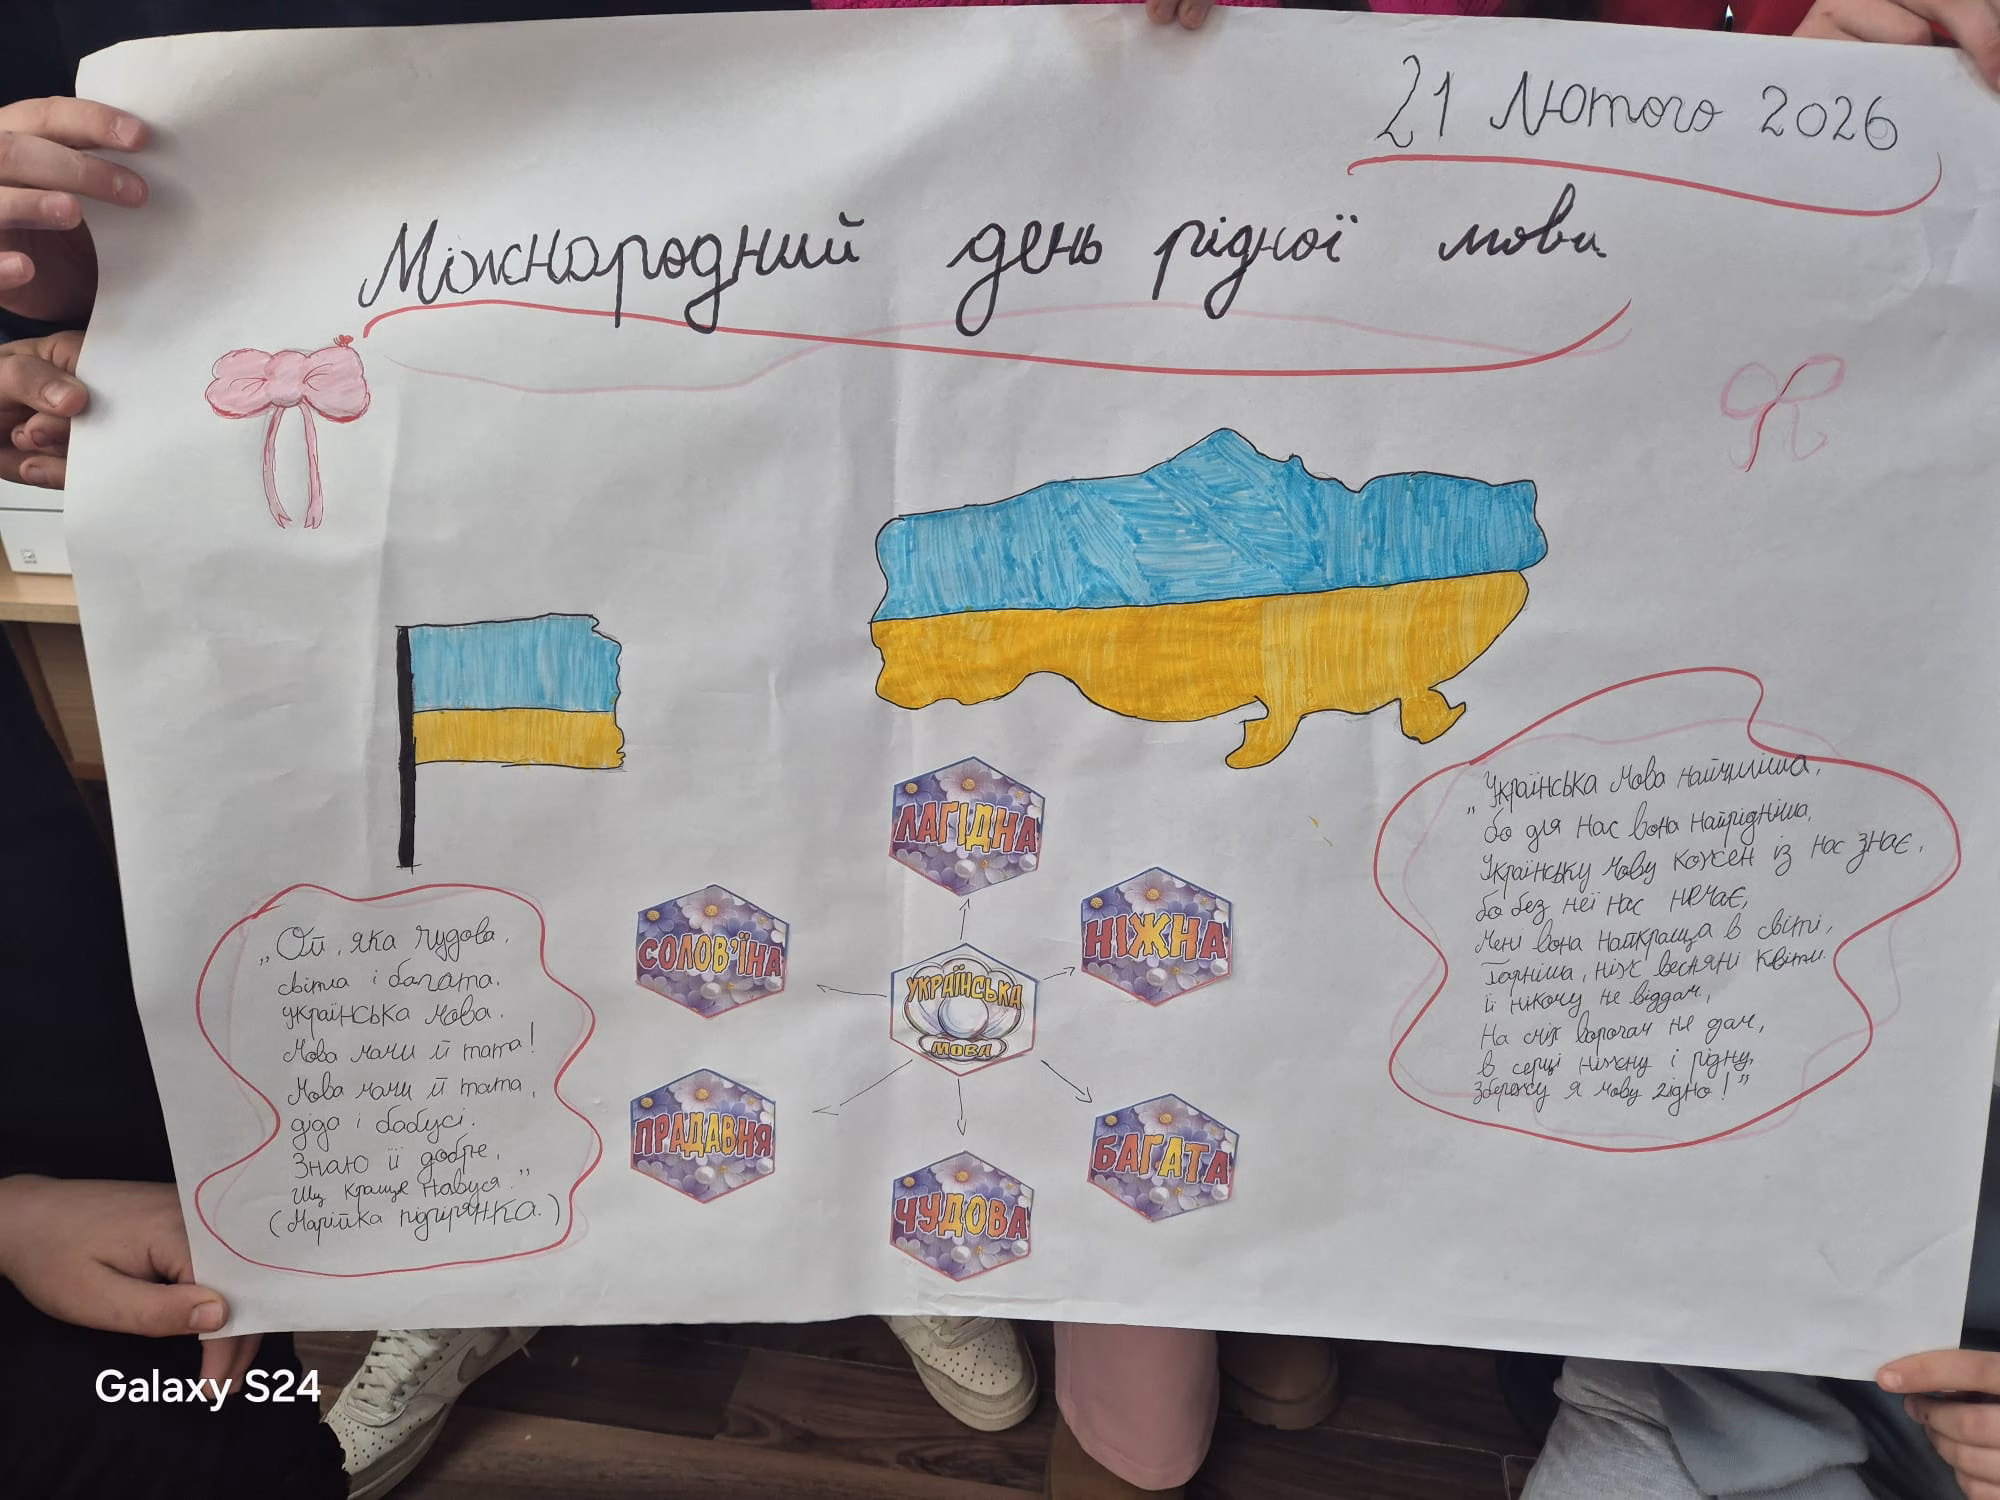 21 Лютого 2026
Міжнародний день рідної мови
"Українська мова наймиліша,
бо для нас вона найрідніша,
Українську мову кожен із нас знає,
бо без неї нас немає,
Мені вона найкраща в світі,
Гарніша, ніж весняні квіти.
її нікому не віддам,
На сміх ворогам не дам,
в серці ніжну і рідну,
Збережу я мову гідно!"
ЛАГІДНА
СОЛОВ'ЇНА
НІЖНА
УКРАЇНСЬКА
МОВА
ПРАДАВНЯ
БАГАТА
ЧУДОВА
„Ой, яка чудова,
світла і багата,
українська мова.
Мова мами й тата!
Мова мами й тата,
діда і бабусі.
Знаю її добре,
Ще краще навчуся."
(Марійка підгірянка.)
Galaxy S24